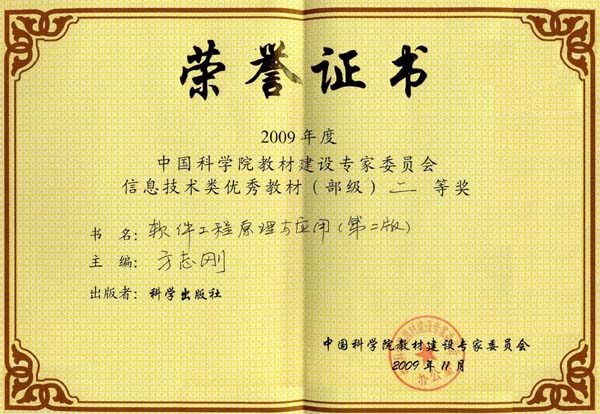 荣誉证书
2009年度
中国科学院教材建设专家委员会
信息技术类优秀教材(部级)二等奖
书名:软件工程原理与应用(第二版)
主编:方志刚
出版者:科学出版社
中国科学院教材建设专家委员会
2009年11月
办公室